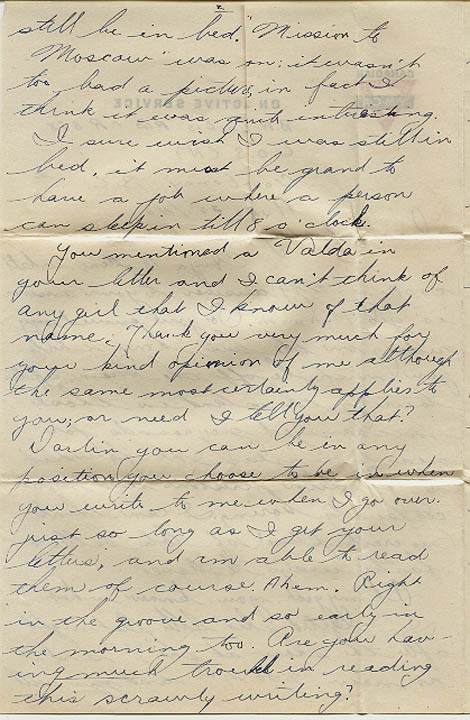 2.
still be in bed. "Mission to
Moscow" was on; it wasn't
too bad a picture, in fact I
think it was quite intresting.
I sure wish I was still in
bed, it must be grand to
have a job where a person
can sleep in till 8 o'clock.
You mentioned a Valda in
your letter and I can't think of
any girl that I know of that
name. Thank you very much for
your kind opinion of me although
the same most certainly applies to
you; or need I tell you that?
Darlin you can be in any
position you choose to be in when
you write to me when I go over.
just so long as I get your
letters, and am able to read
them of course Ahem. Right
in the groove and so early in
the morning too. Are you hav-
ing much trouble in reading
this scrawly writing?
CANADIAN
ON ACTIVE SERVICE